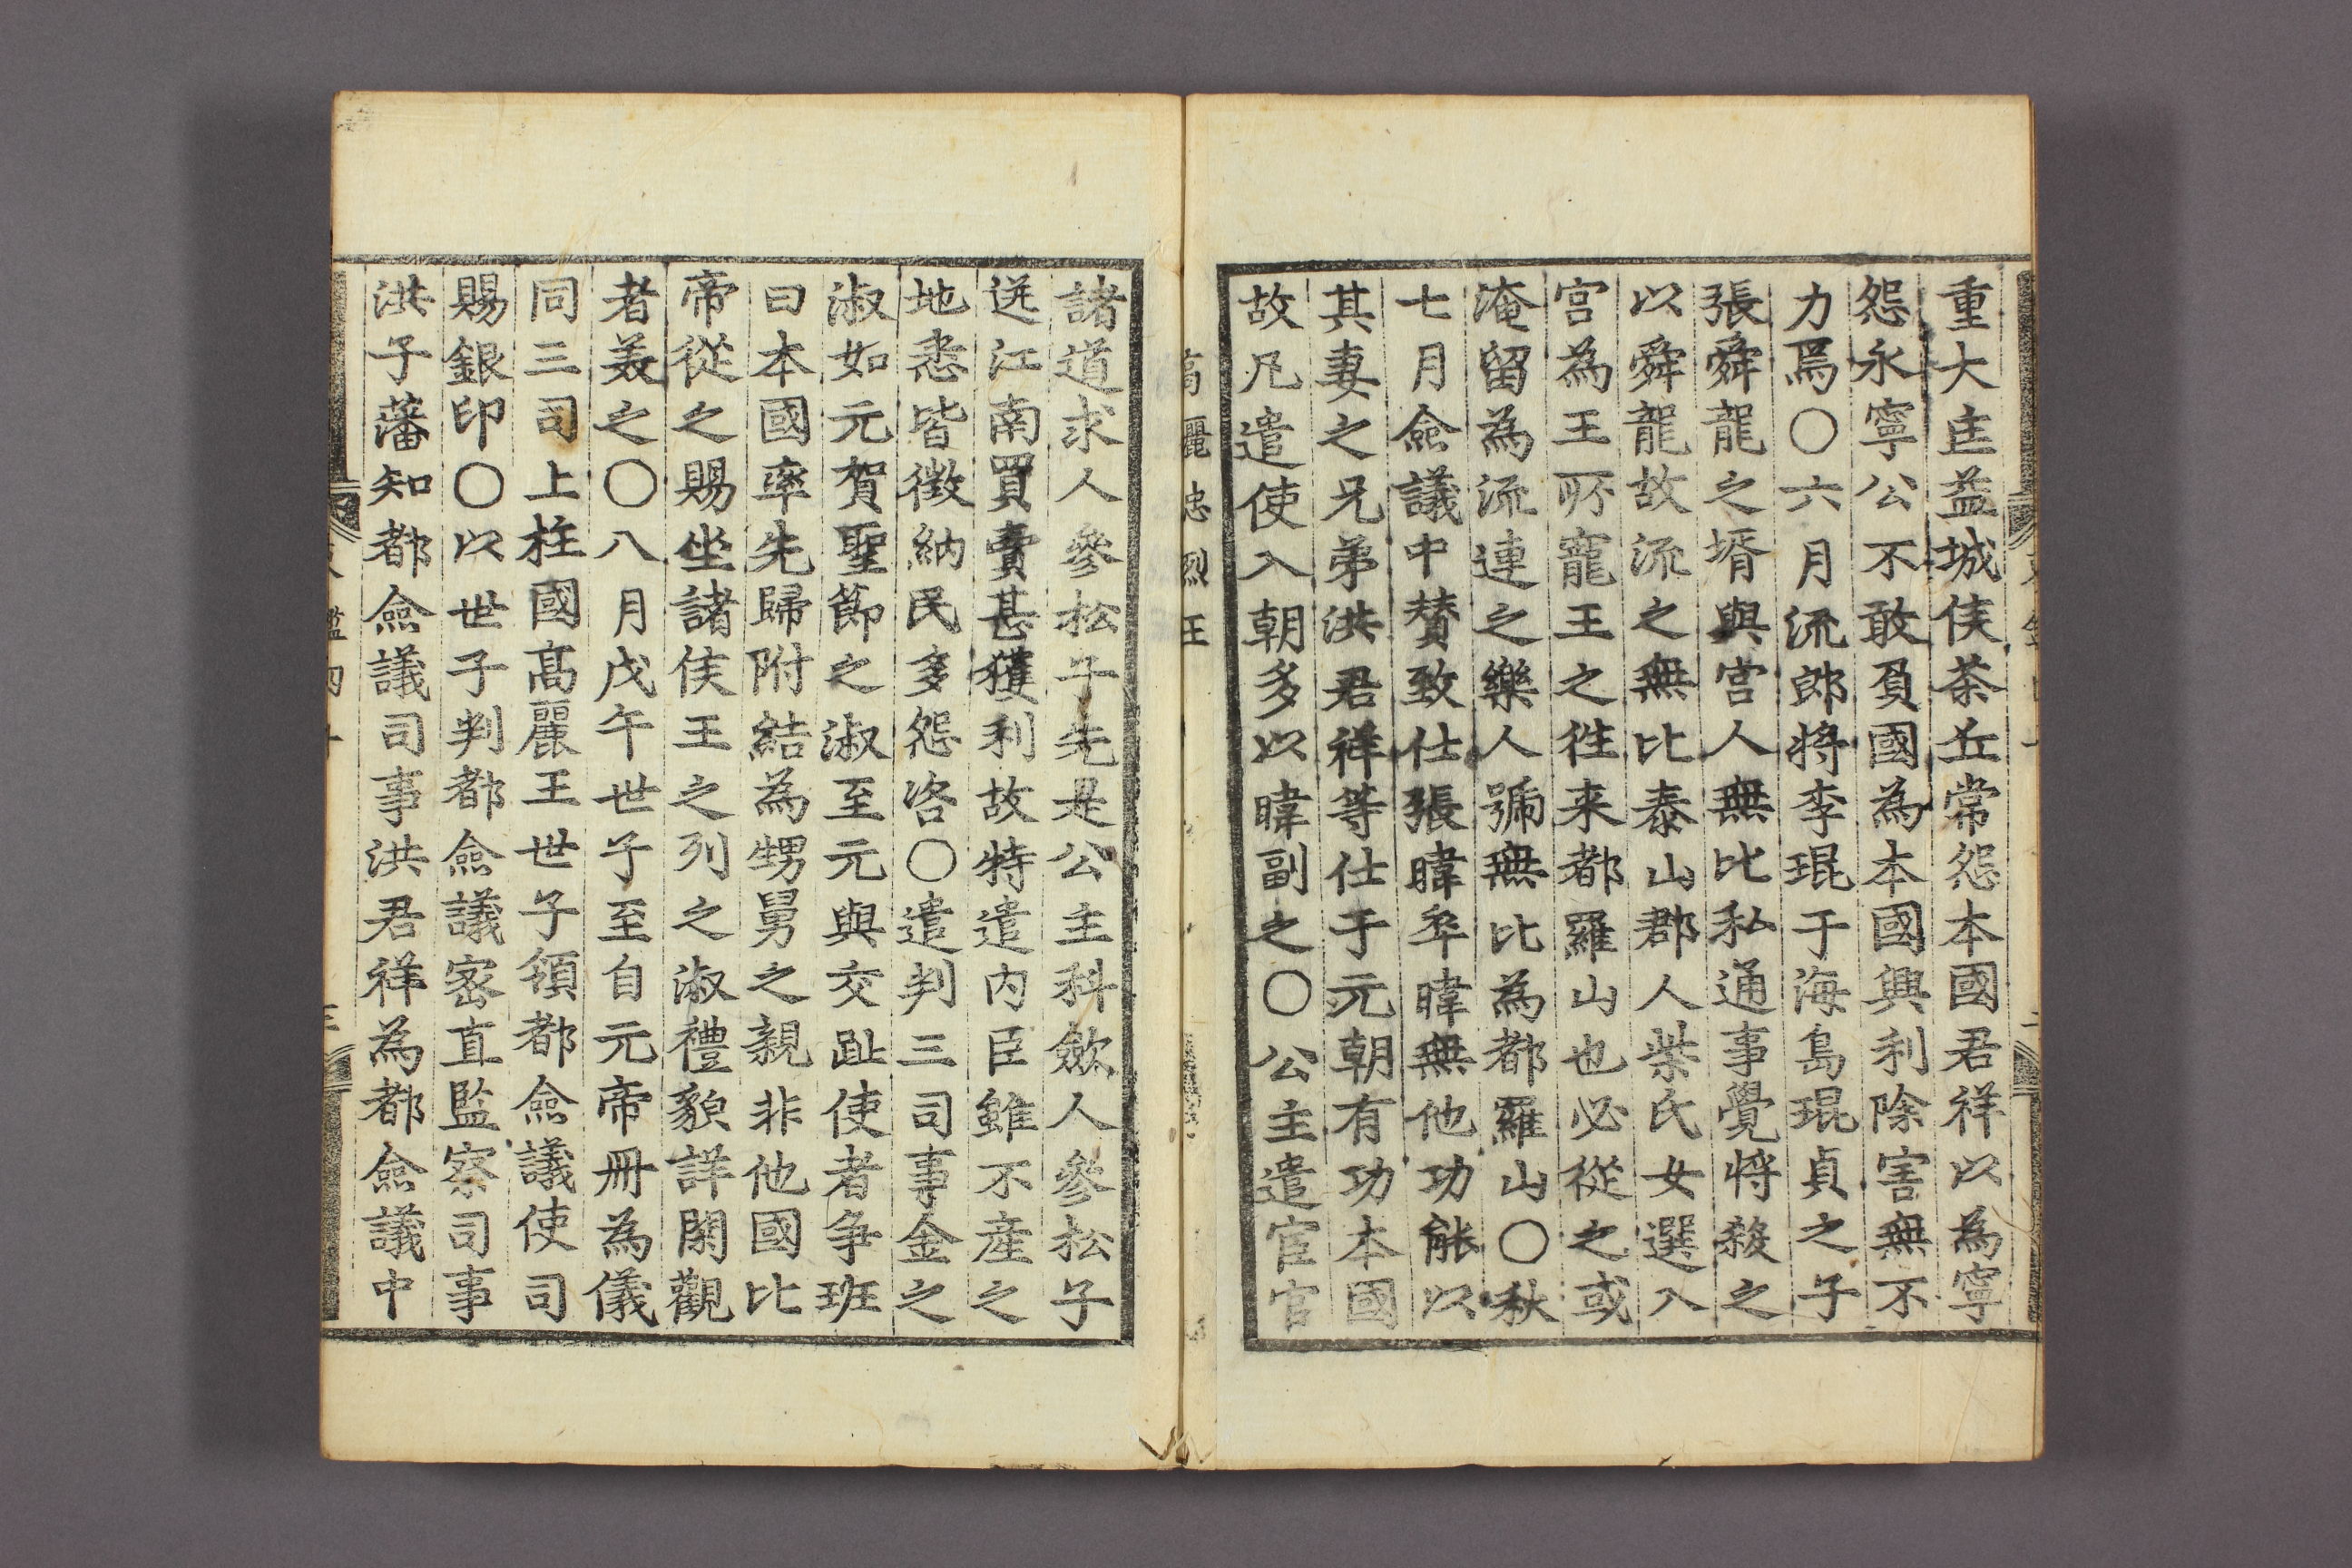 重大匡益城侯茶丘常怨本國君祥以為寧
怨永寧公不敢負國為本國興利除害無不
力焉〇六月流郎將李琨于海島琨貞之子
張舜龍之壻與宮人無比私通事覺將殺之
以舜龍故流之無比泰山郡人柴氏女選入
宮為王所寵王之徃来都羅山也必從之或
淹留為流連之樂人號無比為都羅山〇秋
七月僉議中賛致仕張暐卒暐無他功能以
其妻之兄弟洪君祥等仕于元朝有功本國
故凡遣使入朝多以暐副之〇公主遣宦官
高麗忠烈王
諸道求人參松子先是公主科歛人參松子
送江南買賣甚獲利故特遣內臣雖不産之
地悉皆徵納民多怨咨〇遣判三司事金之
淑如元賀聖節之淑至元與交趾使者争班
曰本國率先歸附結為甥舅之親非他國比
帝從之賜坐諸侯王之列之淑禮貌詳閑觀
者美之〇八月戊午世子至自元帝冊為儀
同三司上柱國髙麗王世子領都僉議使司
賜銀印〇以世子判都僉議密直監察司事
洪子藩知都僉議司事洪君祥為都僉議中